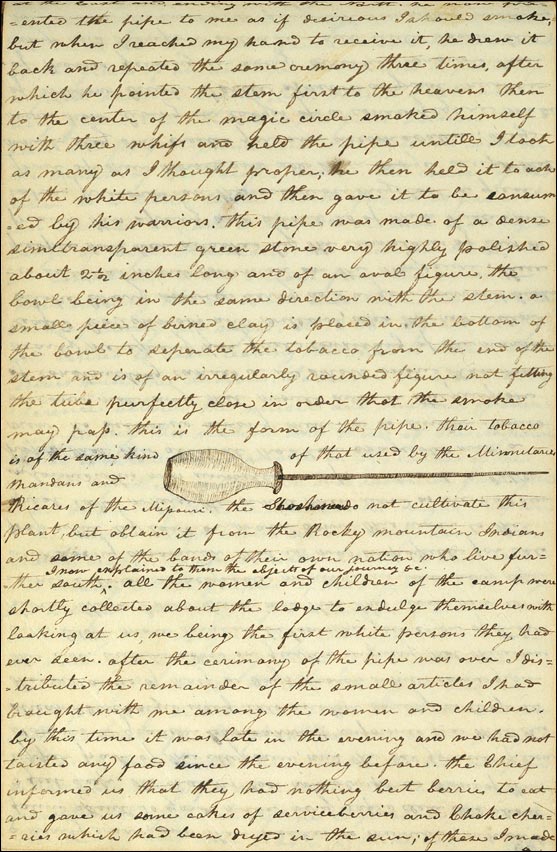 at the East and ending with the North. he now pre=
=ented the pipe to me as if desirious I should smoke,
but when I reached my hand to receive it, he drew it
back and repeated the same cremony three times, after
which he pointed the stem first to the heavens then
to the center of the magic circle smoked himself
with three whifs and held the pipe untill I took
as many as I thought proper; he then held it to each
of the white persons and then gave it to be consum
=ed by his warriors. this pipe was made of a dense
simitransparent green stone very highly polished
about 2 1/2 inches long and of an oval figure, the
bowl being in the same direction with the stem. a
small piece of birned clay is placed in the bottom of
the bowl to seperate the tobacco from the end of the
stem and is of an irregularly rounded figure not fitting
the tube purfectly close in order that the smoke
may pass. this is the form of the pipe. their tobacco
is of the same kind of that used by the Minnetares
Mandans and
Ricares of the Missouri. the Shoshonees do not cultivate this
plant, but obtain it from the Rocky mountain Indians
and some of the bands of their own nation who live fur=
I now explained to them the objects of our journey &c.
ther south. all the women and children of the camp were
shortly collected about the lodge to endulge themselves with
looking at us, we being the first white persons they had
ever seen. after the cerimony of the pipe was over I dis=
=tributed the remainder of the small articles I had
brought with me among the women and children.
by this time it was late in the evening and we had not
taisted any food since the evening before. the Chief
informed us that they had nothing but berries to eat
and gave us some cakes of serviceberries and Choke cher=
=ries which had been dryed in the sun; of these I made